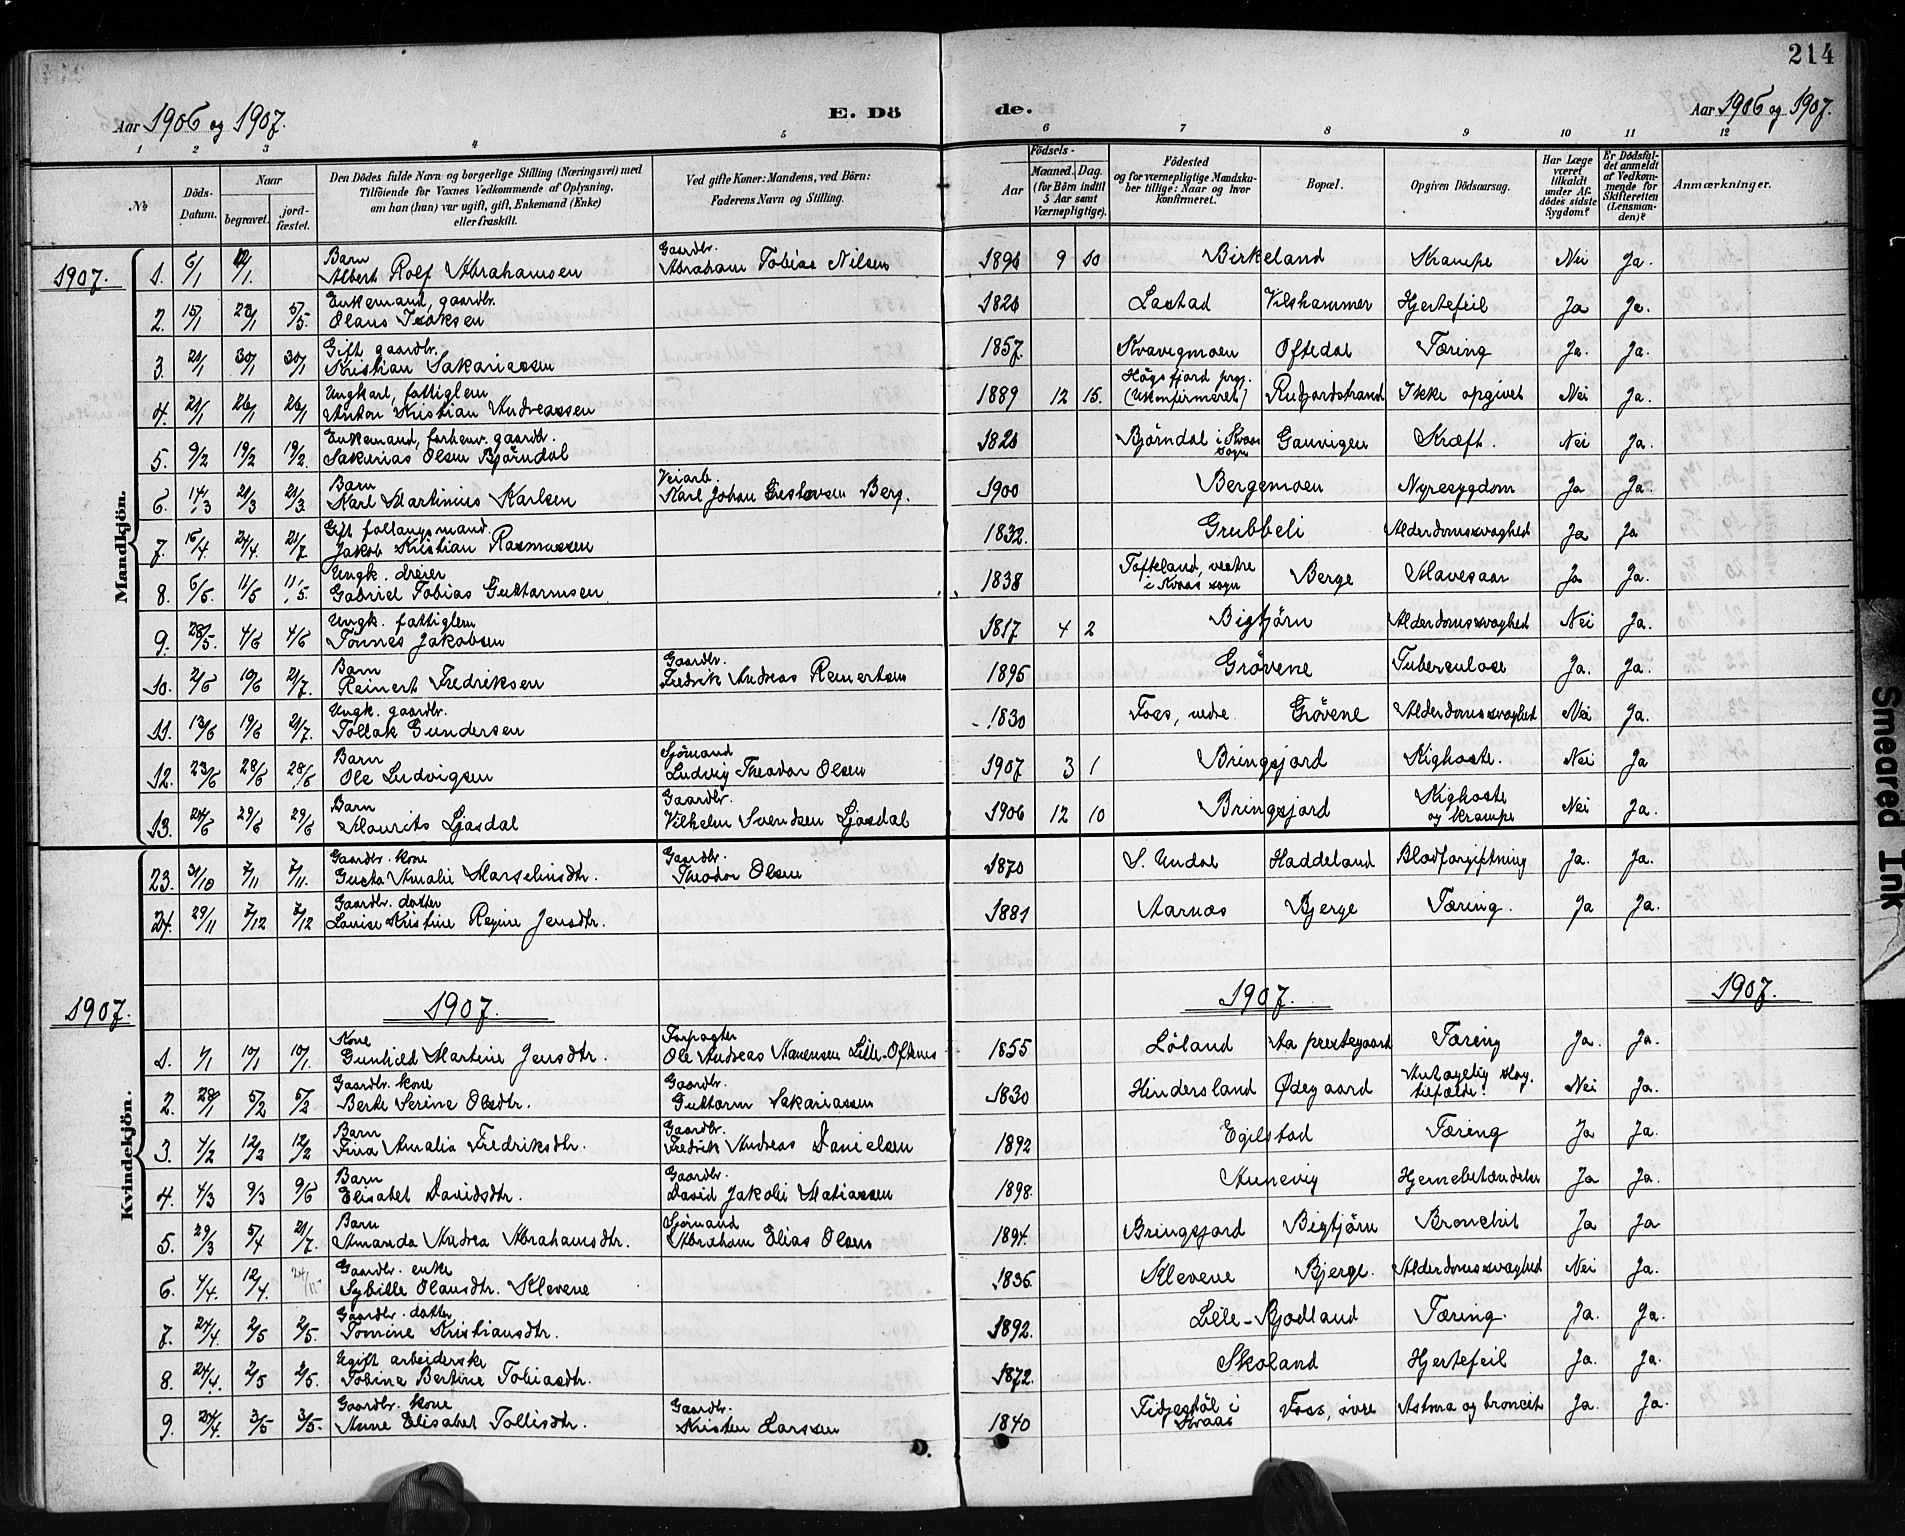 214
Aar 1906 og 1907. E. Dö de. Aar 1906 og 1907.
1 2 3 4 5 6 7 8 9 10 11 12
No Döds-Datum. Naar begravet. jord-fæstet. Den Dödes fulde Navn og borgerlige Stilling (Næringsvei) med Tilföiende for Voxnes Vedkommende af Oplysning, om han (hun) var ugift, gift, Enkemand (Enke) eller fraskilt. Ved gifte Koner: Mandens, ved Börn: Faderens Navn og Stilling. Födsels- Aar Maaned. Dag. (for Börn indtil 5 Aar samt Værnepligtige). Födested og for værnepligtige Mandskaber tillige: Naar og hvor konfirmeret. Bopæl. Opgiven Dödsaarsag. Har Læge været tilkaldt under Afdödes sidste Sygdom? Er Dödsfaldet anmeldt af Vedkommende for Skifteretten (Lensmanden)? Anmærkninger.
1907.
Mandkjön.
Barn Gaardbr.
1. 6/1 12/1. Albert Rolf Abrahamsen Abraham Tobias Nilsen 1896 9 10 Birkeland Krampe Nei Ja.
Enkemand, gaardbr.
2. 15/1 5/5. Olaus Isaksen 1826 Lastad Vilshammer Hjertefeil Ja Ja.
Gift gaardbr.
3. 20/1 30/1 30/1 Kristian Sakariassen 1857. Kvavigmoen Oftedal Tæring Ja. Ja.
Ungkarl, fattiglem Högsfjord prgj.
4. 21/1 26/1 26/1 Anton Kristian Andreassen 1889 12 15. (Ukonfirmeret) Ikke opgivet Nei Ja.
Enkemand, forhenv. gaardbr.
5. 9/2 19/2 19/2. Sakarias Olsen Bjørndal 1826 Bjørndal i Kvaas sogn Gauvigen Kræft. Nei Ja.
Barn Veiarb.
6. 14/3 21/3 21/3. Karl Martinius Karlsen Karl Johan Gustavsen Berg. 1900 Bergemoen Nyresygdom Ja Ja.
Gift follaugsmand.
7. 16/4. 24/4. 21/7 Jakob Kristian Rasmussen 1832. Grubbeli Alderdomssvaghed Ja Ja
Ungk. dreier
8. 6/5. 11/5 11/5. Gabriel Tobias Guttormsen 1838 Tofteland, vestre i Kvaas sogn Berge Mavesaar Ja Ja.
Ungk. fattiglem
9. 28/5. 4/6 4/6 Tønnes Jakobsen 1817 4 2 Bigtjørn Alderdomssvaghed Nei Ja.
Barn Gaardbr.
10. 2/6 19/6 21/7. Reinert Fredriksen Fredrik Andreas Reinertsen 1895 Grövene Tuberculose Ja. Ja.
Ungk. gaardbr.
11. 13/6 19/6 21/7. Tollak Gundersen 1830 Foss, nedre Grövene Alderdomssvaghed Nei Ja.
Barn Sjømand
12. 23/6 28/6 28/6 Ole Ludvigsen Ludvig Theodor Olsen 1907 3 1 Bringsjord Kighoste. Nei Ja
Barn Gaardbr.
13. 24/6 29/6 29/6 Maurits Ljosdal Vilhelm Svendsen Ljosdal 1906 12 10 Bringsjord Kighoste og krampe Nei Ja.
Kvindekjön.
Gaardbr. kone Gaardbr.
23. 31/10 7/11 7/11. Gusta Amalie Marseliusdtr. Theodor Olsen 1870 S. Undal Haddeland Blodforgiftning Ja. Ja.
Gaardbr. datter
24. 29/11 7/12 7/12 Lovise Kristine Regine Jensdtr. 1881 Aarnes Bjerge Tæring. Ja Ja.
1907. 1907. 1907. 1907.
Kone Forpagter
1. 1/1 10/1 10/1. Gunhild Martine Jensdtr. Ole Andreas Lille-Oftenes 1855 Løland Aa prestegaard Tæring Ja. Ja.
Gaardbr. kone Gaardbr.
2. 28/1 5/2 5/2 Berte Serine Olsdtr. Guttorm Sakariassen 1830 Hindersland Ødegaard Antagelig slagtilfælde. Nei Ja.
Barn Gaardbr.
3. 4/2 12/2 12/2 Tina Amalia Fredriksdtr. Fredrik Andreas Danielsen 1892 Egilstad Tæring Ja Ja.
Barn Gaardbr.
4. 4/3 9/3 9/6 Elisabet Davidsdtr. David Jakobi Matiassen 1898. Aunevig Hjernebetændelse Ja Ja.
Barn Sjømand
5. 29/3 5/4 21/7. Amanda Andrea Abrahamsdtr. Abraham Elias Olsen 1894. Bringsjord Bigtjörn Bronchit Ja Ja
Gaardbr. enke
6. 4/4. 12/4. 24/11 Sybille Olausdtr. Klevene 1836. Klevene Bjerge. Alderdomssvaghed Nei Ja.
Gaardbr. datter
7. 24/4. 2/5 2/5. Tomine Kristiansdtr. 1892. Lille-Kjodland Tæring. Ja. Ja.
Ugift arbeiderske
8. 24/4. 2/5 2/5. Tobine Bertine Tobiasdtr. 1872. Skoland Hjertefeil Ja. Ja.
Gaardbr. kone Gaardbr.
9. 24/4. 3/5 3/5. Anne Elisabet Tollisdtr. Kristen Larssen 1840 Fidjestøl i Kvaas Foss, övre Astma og broncit Ja. Ja.
D.
Smeared Ink